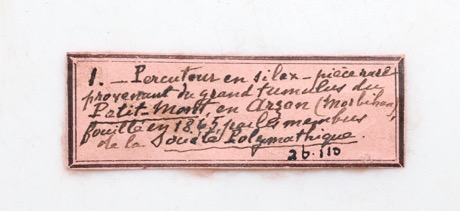 1. _ Percuteur en silex _ pièce rare
provenant du grand tumulus du
Petit-Mont en Arzon (Morbihan)
fouillé en 1865 par les membres
de la Société Polymathique.
26.110